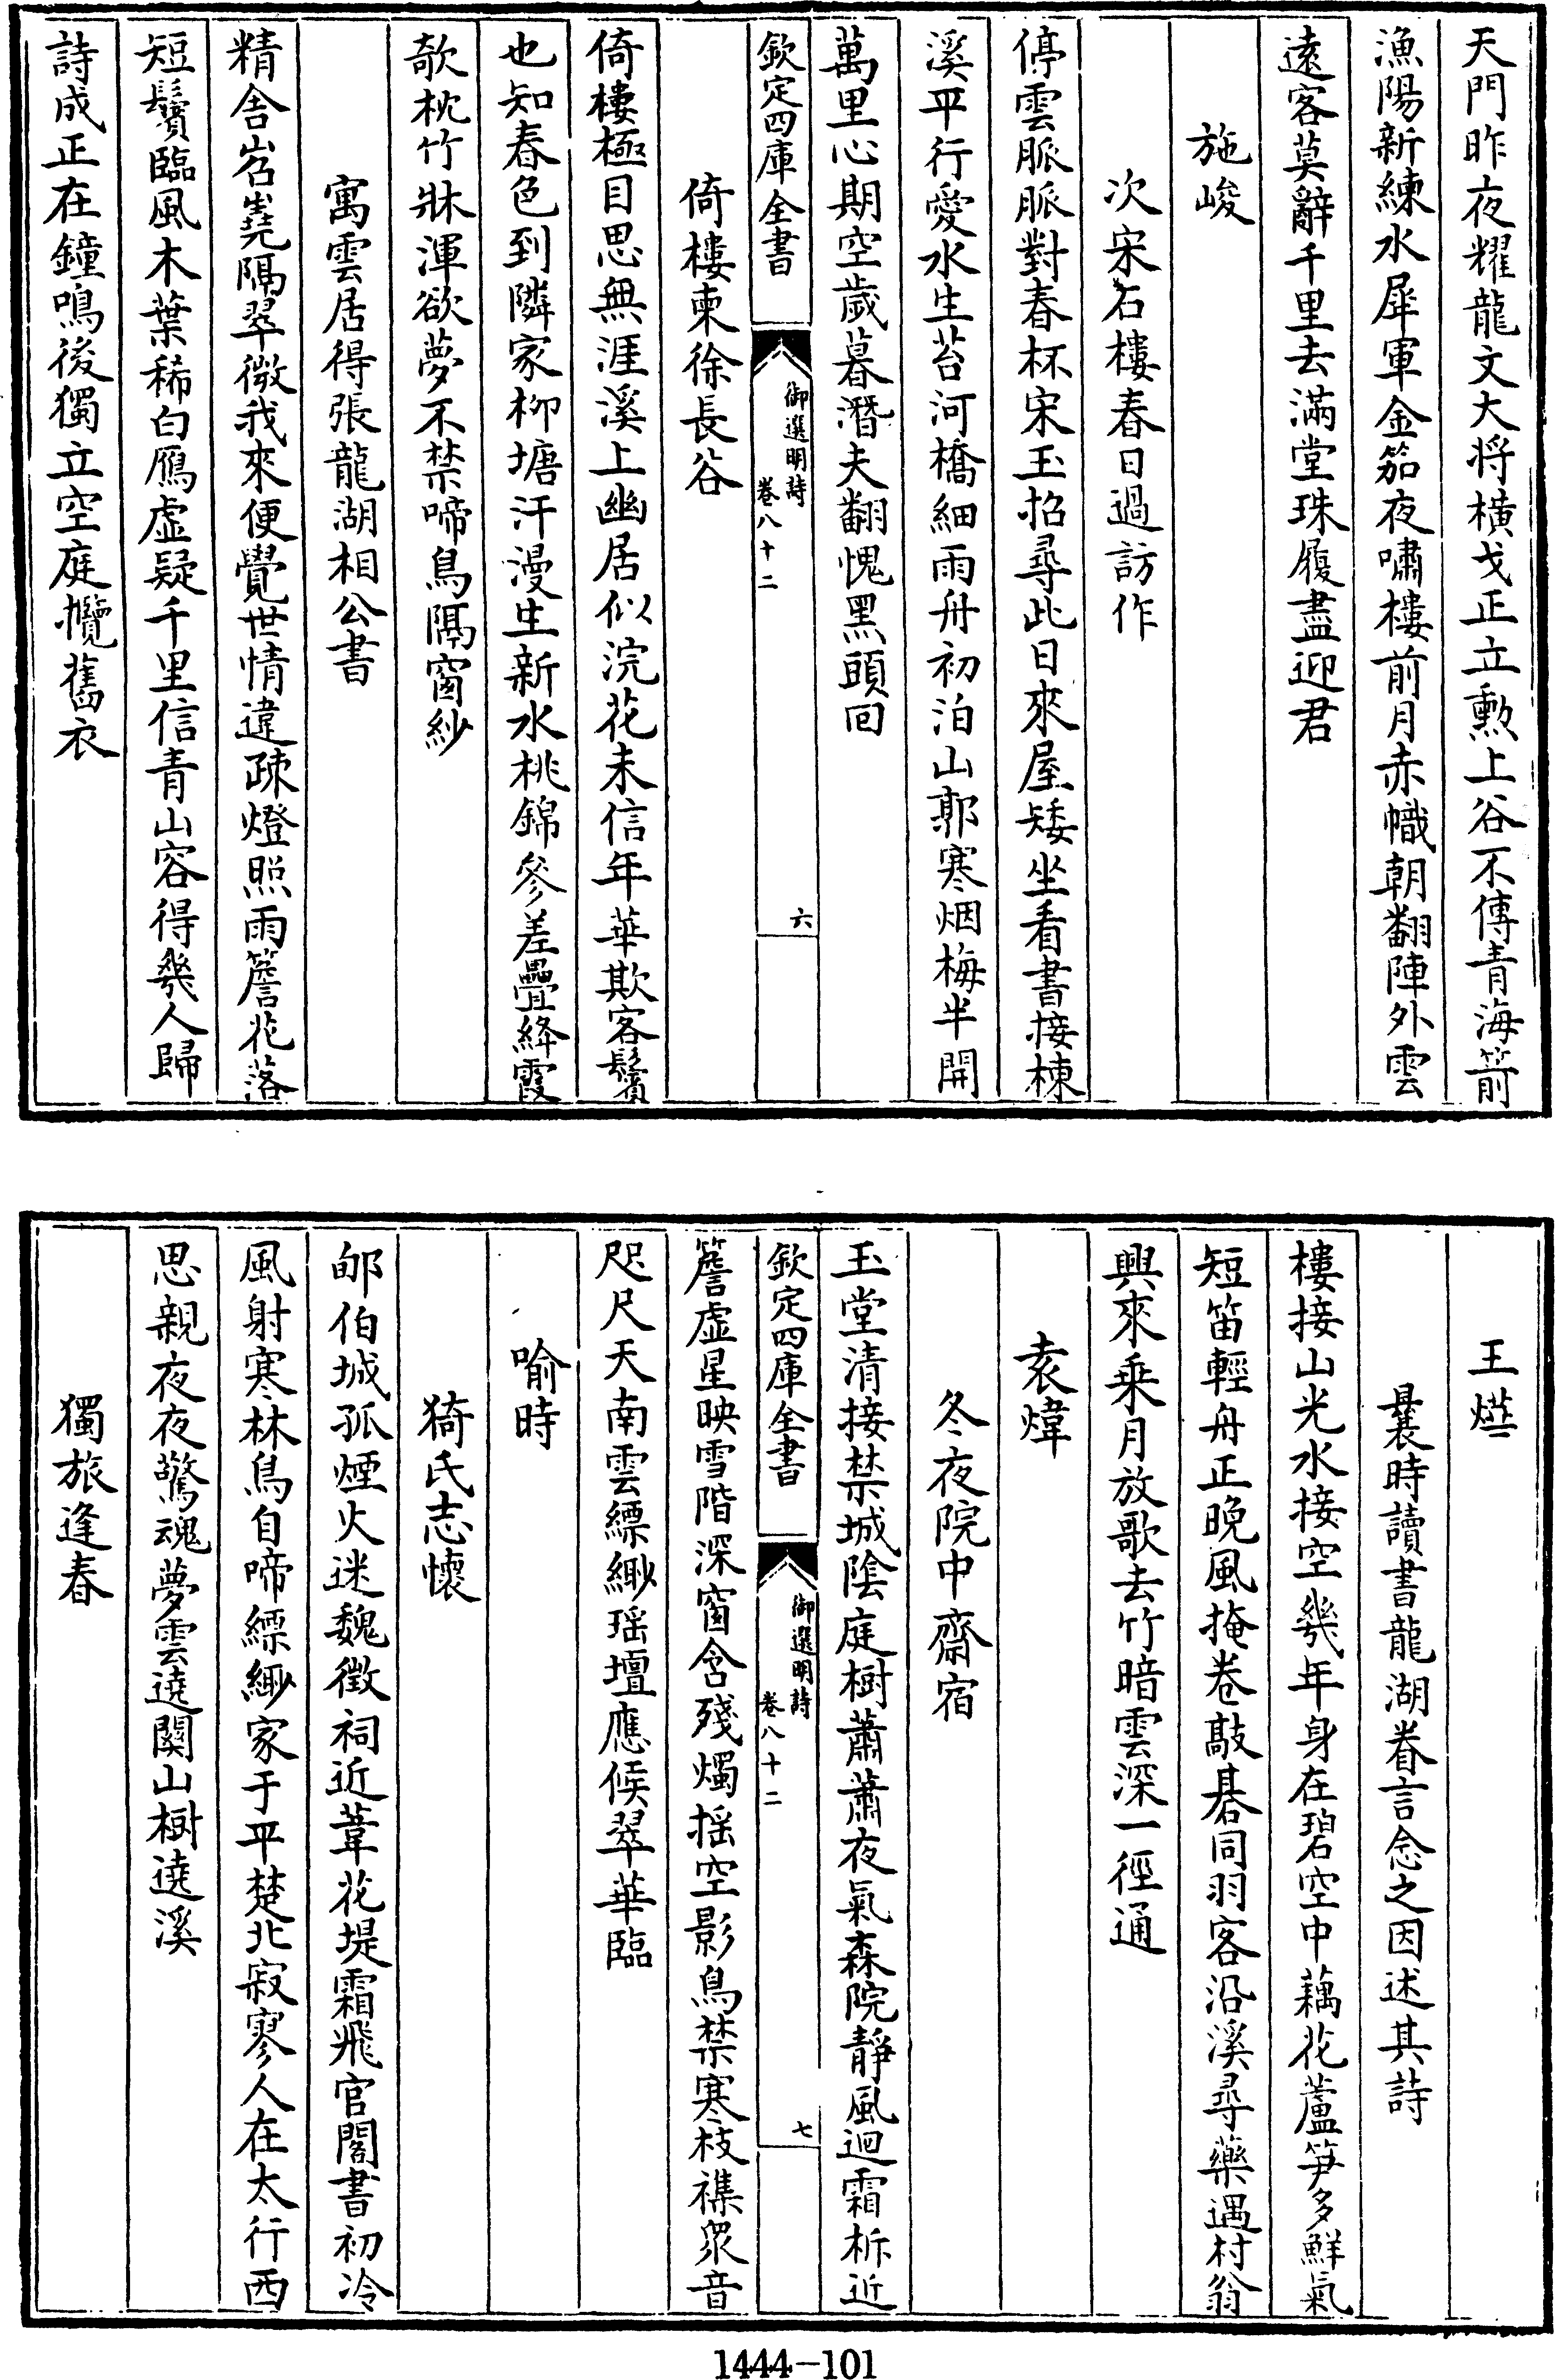 天門昨夜耀龍文大將橫戈正立勲上谷不傳青海箭
漁陽新練水犀軍金笳夜嘯樓前月赤幟朝翻陣外雲
遠客莫辭千里去滿堂珠履盡迎君
施峻
次宋石樓春日過訪作
停雲脈脈對春杯宋玉招尋此日來屋矮坐看書接棟
溪平行愛水生苔河橋細雨舟初泊山郭寒烟梅半開
萬里心期空歲暮潛夫翻愧黑頭回
欽定四庫全書
御選明詩
卷八十二
六
倚樓柬徐長谷
倚樓極目思無涯溪上幽居似浣花未信年華欺客鬢
也知春色到隣家柳塘汗漫生新水桃錦參差疊絳霞
欹枕竹牀渾欲夢不禁啼鳥隔窗紗
寓雲居得張龍湖相公書
精舍岧嶤隔翠微我來便覺世情違疎燈照雨簷花落
短鬢臨風木葉稀白鴈虛疑千里信青山容得幾人歸
詩成正在鐘鳴後獨立空庭攬舊衣
王㷼
曩時讀書龍湖眷言念之因述其詩
樓接山光水接空幾年身在碧空中藕花蘆笋多鮮氣
短笛輕舟正晚風掩卷敲碁同羽客沿溪尋藥遇村翁
興來乘月放歌去竹暗雲深一徑通
袁煒
冬夜院中齋宿
玉堂清接禁城陰庭樹蕭蕭夜氣森院靜風迴霜柝近
欽定四庫全書
御選明詩
卷八十二
七
簷虛星映雪階深窗含殘燭搖空影鳥禁寒枝襍衆音
咫尺天南雲縹緲瑶壇應候翠華臨
喻時
猗氏志懷
郇伯城孤煙火迷魏徵祠近葦花堤霜飛官閣書初冷
風射寒林鳥自啼縹緲家于平楚北寂寥人在太行西
思親夜夜驚魂夢雲遶關山樹遶溪
獨旅逢春
1444-101